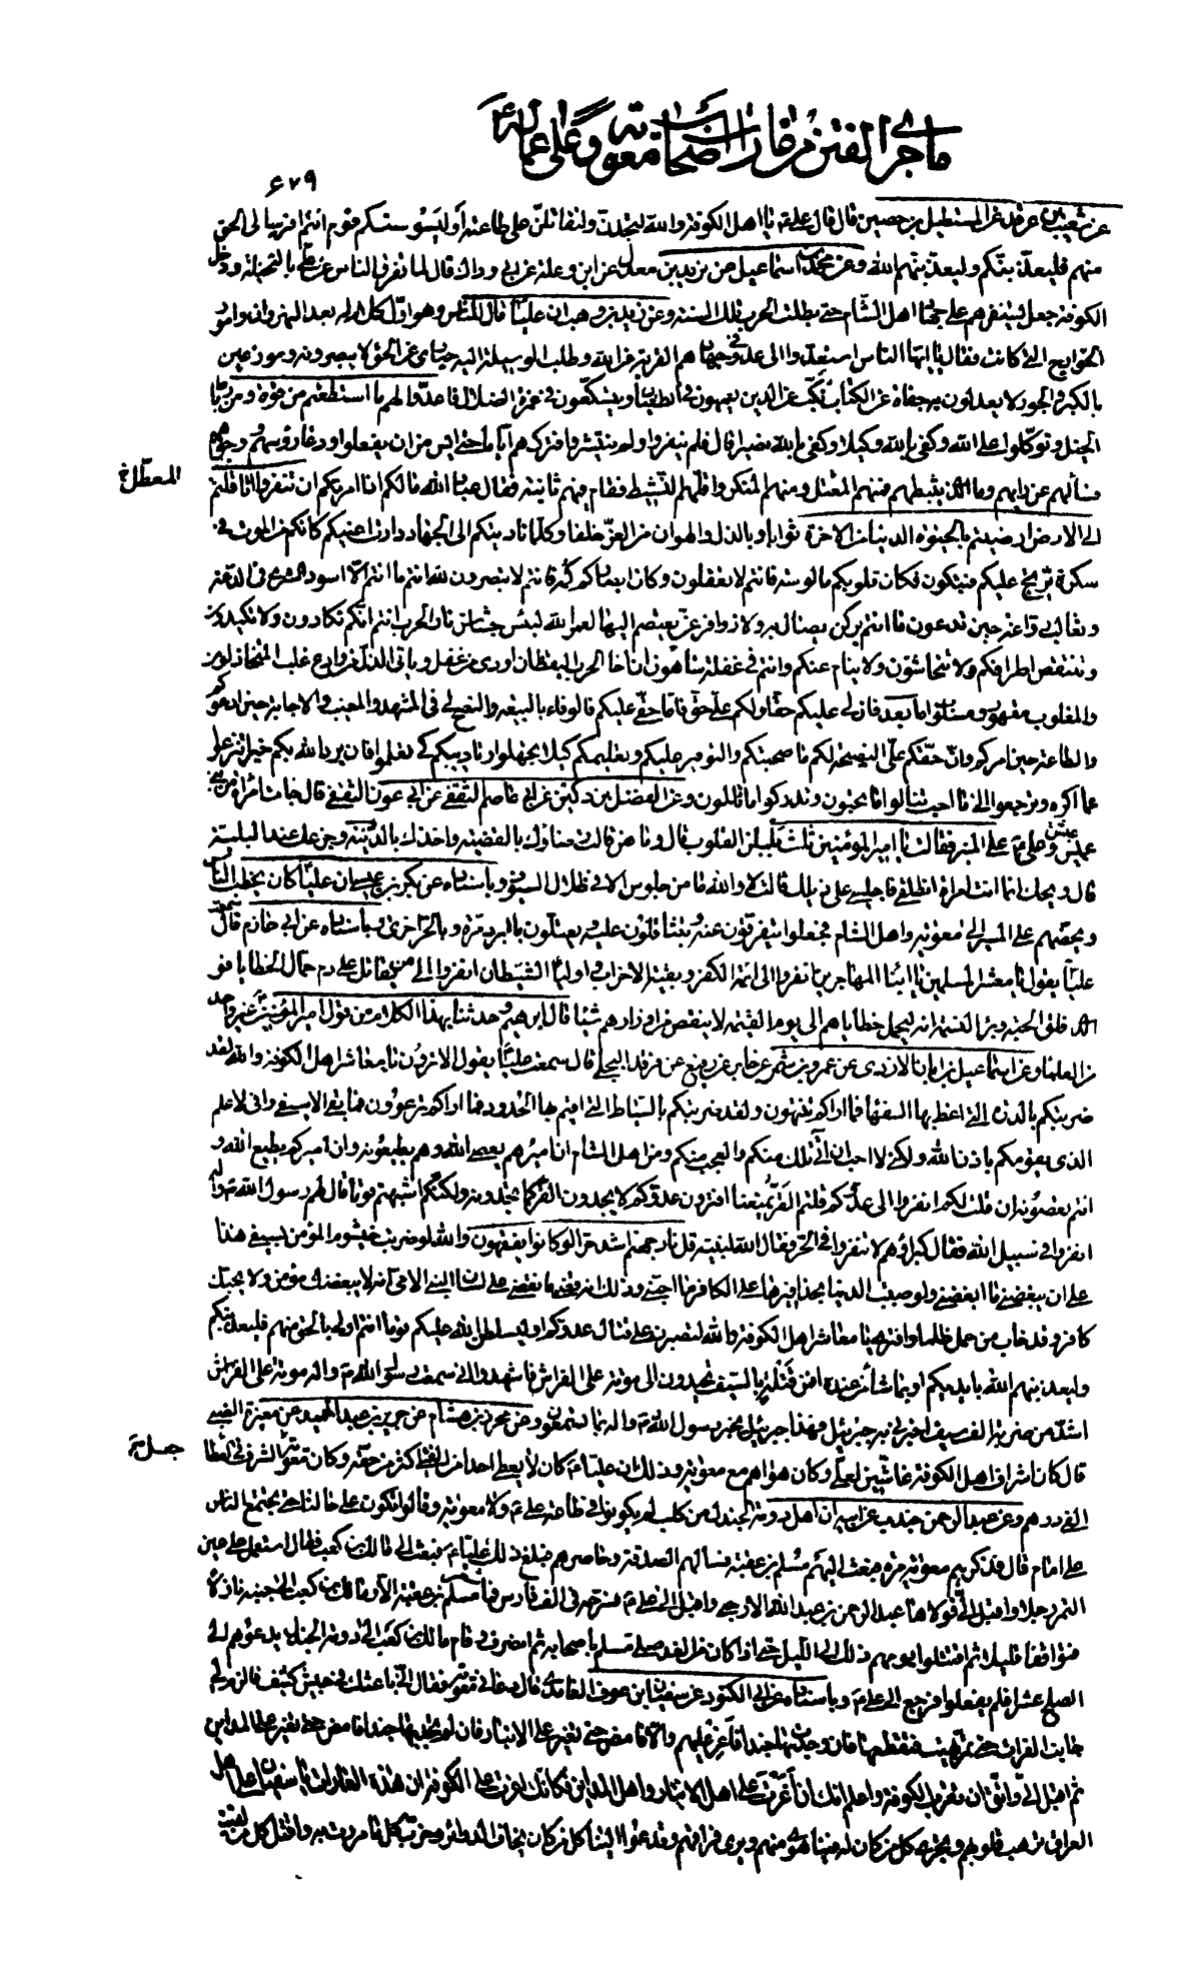 ما جرى الفتن من غارات اصحاب معوية على عماله ع
۶۷۹
عن المستظل بن حصين قال قال علي ع يا اهل الكوفة والله لتجدن ولتقاتلن على طاعته او ليسوسنكم قوم انتم اقرب الى الحق
منهم فليعذبنكم وليعذبنهم الله وعن محمد بن اسماعيل عن يزيد بن معدل عن ابن وعلة عن ابي وداك قال لما تفرق الناس عن علي بالنخيلة ودخل
الكوفة جعل يستنفرهم على جهاد اهل الشام حتى بطلت الحرب تلك السنة وعن زيد بن وهب ان عليا قال للناس وهو اول كلام له بعد النهروان وامور
الخوارج التي كانت فقال يا ايها الناس استعدوا الى عدو في جهادهم القربة من الله وطلب الوسيلة اليه حيارى عن الحق لا يبصرونه وموزعين
بالكبر والجور لا يعدلون به جفاة عن الكتاب نكب عن الدين يعمهون في الطغيان ويتسكعون في غمرة الضلال فاعدوا لهم ما استطعتم من قوة ومن رباط
الخيل وتوكلوا على الله وكفى بالله وكيلا وكفى بالله نصيرا قال فلم ينفروا ولم ينتشروا فتركهم اياما حتى ايس من ان يفعلوا ودعا رؤسهم ووجوههم
فسألهم عن رايهم وما الذي يثبطهم فمنهم المعتل ومنهم المنكر واقلهم النشيط فقام فيهم ثانية فقال عباد الله ما لكم اذا امرتكم ان تنفروا اثاقلتم
المعطل خ
الى الارض ارضيتم بالحيوة الدنيا من الاخرة ثوابا وبالذل والهوان من العز خلفا وكلما ناديتكم الى الجهاد دارت اعينكم كانكم من الموت في
سكرة يرتج عليكم فتبكون فكان قلوبكم مالوسة فانتم لا تعقلون وكان ابصاركم كمه فانتم لا تبصرون لله انتم ما انتم الا اسود الشرى في الدعة
وثعالب رواغة حين تدعون ما انتم بركن يصال به ولا زوافر عز يعتصم اليها لعمر الله لبئس حشاش نار الحرب انتم انكم تكادون ولا تكيدون
وتنتقص اطرافكم ولا تتحاشون ولا ينام عنكم وانتم في غفلة ساهون ان اخا الحرب اليقظان اودى من غفل وياتي الذل من وادع غلب المتخاذلون
والمغلوب مقهور ومسلوب اما بعد فان لي عليكم حقا ولكم علي حق فاما حقي عليكم فالوفاء بالبيعة والنصح لي في المشهد والمغيب والاجابة حين ادعوكم
والطاعة حين امركم وان حقكم علي النصيحة لكم ما صحبتكم والتوفير عليكم وتعليمكم كيلا تجهلوا وتاديبكم كي تعلموا فان يرد الله بكم خيرا تنزعوا
عما اكره وترجعوا الى ما احب تنالوا ما تحبون وتدركوا ما تاملون وعن الفضل بن دكين عن ابي عاصم الثقفي عن ابي عون الثقفي قال جائت امرأة من بني
عبس وعلي ع على المنبر فقالت يا امير المؤمنين ثلث بلبلن القلوب قال وما هن قالت رضاؤك بالقضية واخذك بالدنية وجزعك عند البلية
قال ويحك انما انت امرأة انطلقي فاجلسي على ذيلك قالت لا والله ما من جلوس الا في ظلال السيوف وباسناده عن بكر بن عيسى ان عليا كان يخطب الناس
ويحضهم على المسير الى معوية واهل الشام فجعلوا يتفرقون عنه ويتثاقلون عليه ويعتلون بالبرد مرة وبالحر اخرى وباسناده عن ابي حازم قال سمعت
عليا يقول يا معشر المسلمين يا ابناء المهاجرين انفروا الى ائمة الكفر وبقية الاحزاب واولياء الشيطان انفروا الى من يقاتل على دم حمال الخطايا فو
الله فلق الحبة وبرأ النسمة انه ليحمل خطاياهم الى يوم القيمة لا ينقص من اوزارهم شيئا قال ابراهيم وحدثنا بهذا الكلام من قول امير المؤمنين غير واحد
من العلماء وعن اسماعيل بن ابان الازدي عن عمرو بن شمر عن جابر عن رفيع عن فرقد البجلي قال سمعت عليا يقول الا ترون يا معاشر اهل الكوفة والله لقد
ضربتكم بالدرة التي اعظ بها السفهاء فما اراكم تنتهون ولقد ضربتكم بالسياط التي اقيم بها الحدود فما اراكم ترعوون فما بقي الا سيفي واني لاعلم
الذي يقومكم باذن الله ولكني لا احب ان آتي تلك منكم والعجب منكم ومن اهل الشام ان اميرهم يعصي الله وهم يطيعونه وان اميركم يطيع الله و
انتم تعصونه ان قلت لكم انفروا الى عدوكم قلتم القر يمنعنا افترون عدوكم لا يجدون القر كما تجدونه ولكنكم اشبهتم قوما قال لهم رسول الله ص
انفروا في سبيل الله فقال كبراؤهم لا تنفروا في الحر فقال الله لنبيه قل نار جهنم اشد حرا لو كانوا يفقهون والله لو ضربت خيشوم المؤمن بسيفي هذا
على ان يبغضني ما ابغضني ولو صببت الدنيا بحذافيرها على الكافر ما احبني وذلك انه قضى ما قضى على لسان النبي الامي انه لا يبغضك مؤمن ولا يحبك
كافر وقد خاب من حمل ظلما وافترى يا معاشر اهل الكوفة والله لتصبرن على قتال عدوكم او ليسلطن الله عليكم قوما انتم اولى بالحق منهم فليعذبنكم
وليعذبنهم الله بايديكم او بما شاء من عنده افمن قتلة بالسيف تحيدون الى موتة على الفراش فاشهدوا اني سمعت رسول الله ص واله موتة على الفراش
اشد من ضربة الف سيف اخبرني به جبرئيل فهذا جبرئيل يخبر رسول الله ص واله بما تسمعون وعن محرز بن هشام عن جرير بن عبد الحميد عن مغيرة الضبي
قال كان اشراف اهل الكوفة غاشين لعلي وكان هواهم مع معوية وذلك ان عليا ع كان لا يعطي احدا من الفيء اكثر من حقه وكان معوية جعل الشرف في العطاء
جعل خ
الفي درهم وعن عبد الرحمن جندب عن ابيه ان اهل دومة الجندل من كلب لم يكونوا في طاعة علي ع ولا معوية وقالوا نكون على حالنا حتى يجتمع الناس
على امام قال فذكرهم معوية مرة فبعث اليهم مسلم بن عقبة فسألهم الصدقة وحاصرهم فبلغ ذلك عليا ع فبعث الى مالك بن كعب فقال استعمل على عين
التمر رجلا واقبل الي فولاها عبد الرحمن بن عبد الله الارحبي واقبل الى علي ع فسرحه في الف فارس فما شعر مسلم بن عقبة الا ومالك بن كعب الى جنبه نازلا
فتواقفا قليلا ثم اقتتلوا يومهم ذلك الى الليل حتى اذا كان من الغد صلى مسلم باصحابه ثم انصرف وقام مالك بن كعب الى دومة الجندل يدعوهم الى
الصلح عشرا فلم يفعلوا فرجع الى علي ع وباسناده عن ابي الكنود عن سفيان ابن عوف الغامدي قال دعاني معوية فقال اني باعثك في جيش كثيف فالزم لي
جانب الفرات حتى تمر بهيت فتقطعها فان وجدت بها جندا فاغر عليهم والا فامض حتى تغير على الانبار فان لم تجد بها جندا فامض حتى تغير على المداين
ثم اقبل الي واتق ان تقرب الكوفة واعلم انك ان اغرت على اهل الانبار واهل المداين فكانك اغرت على الكوفة ان هذه الغارات يا سفيان على اهل
العراق ترهب قلوبهم وتجرئ كل من كان له فينا هوى منهم ويرى فراقهم وتدعوا الينا كل من كان يخاف الدوائر وخرب كل ما مررت به واقتل كل من لقيت